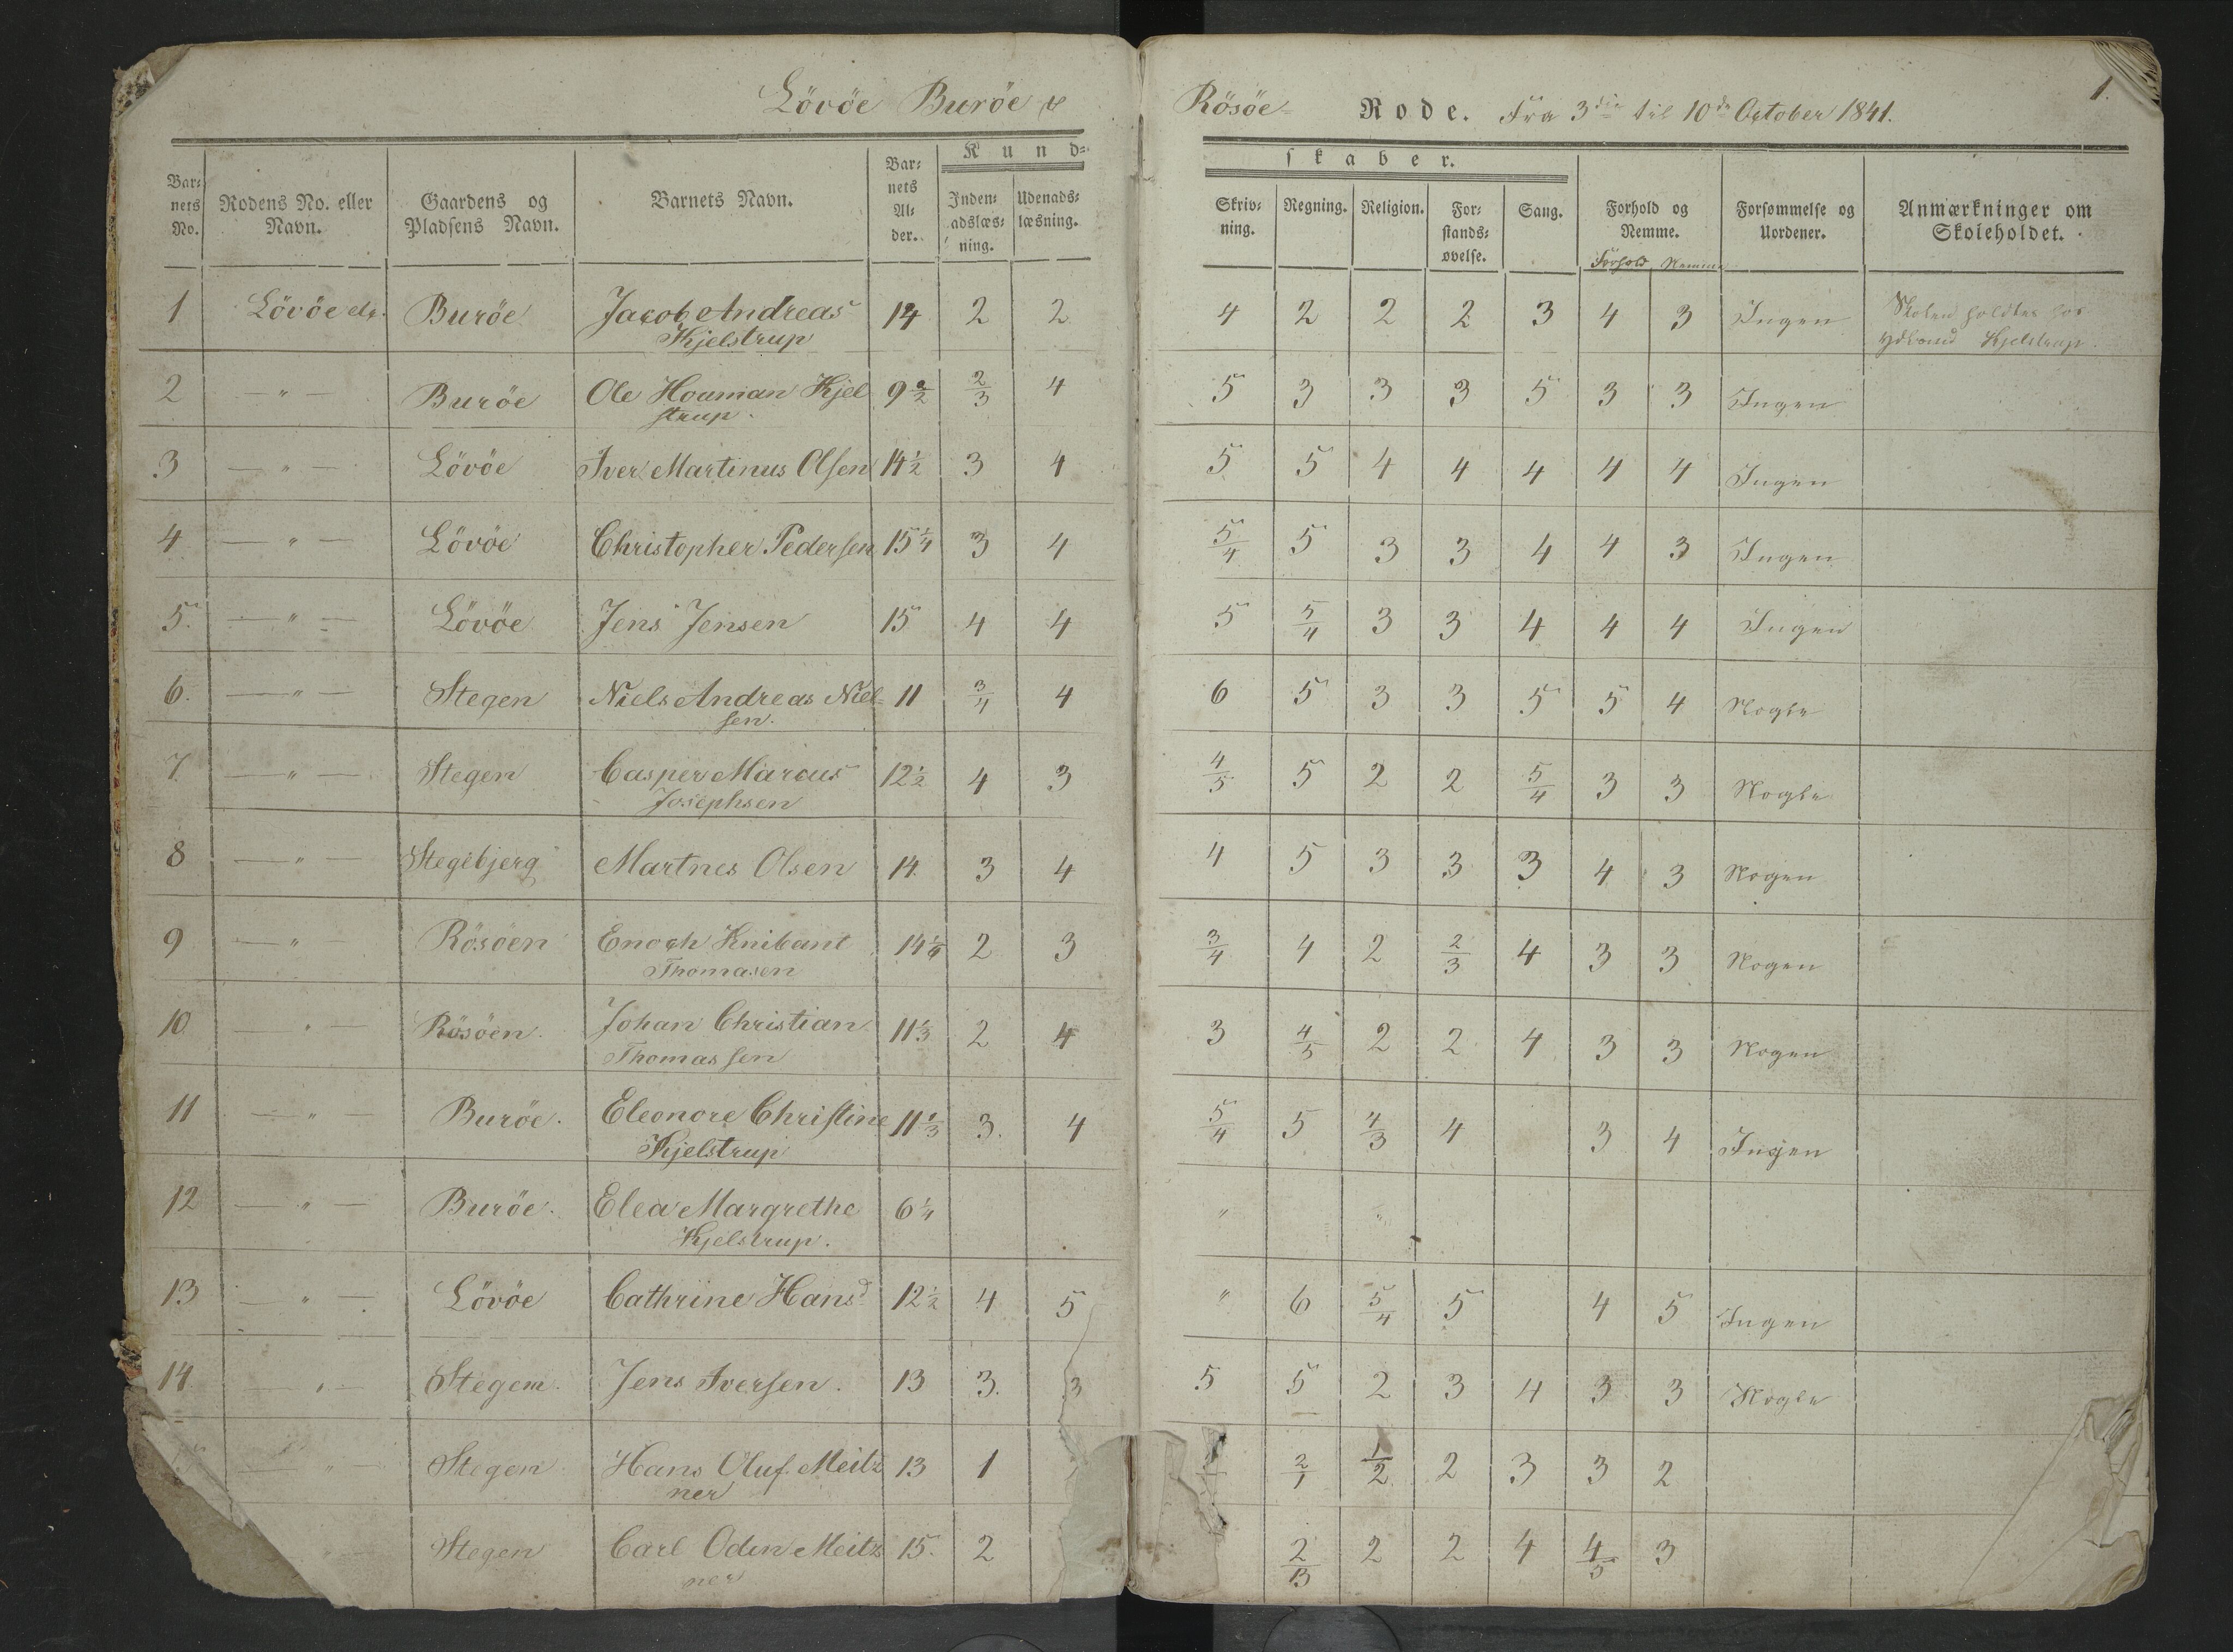 Lövöe Buröe &
Rösöe- Rode. Fra 3die til 10de October 1841.
1.
Kund-
skaber.
Bar-
nets
No.
Rodens No. eller
Navn.
Gaardens og
Pladsens Navn.
Barnets Navn.
Bar-
nets
Al-
der.
Inden-
adslæs-
ning.
Udenads-
læsning.
Skriv-
ning.
Regning.
Religion.
For-
stands-
øvelse.
Sang.
Forhold og
Nemme.
Forhold Nemme
Forsømmelse og
Uordener.
Anmærkninger om
Skoleholdet.
1 Lövöe etc. Buröe Jacob Andreas 14 2 2 4 2 2 2 3 4 3 Ingen Skolen holdtes hos
Kjelstrup Kjelstrup.
2 — " — Buröe Ole Houman Kjel 9 2/3 4 5 3 3 3 5 3 3 Ingen
strup.
3 — " — Lövöe Iver Martinus Olsen 14 1/2 3 4 5 5 4 4 4 4 4 Ingen
4 — " — Lövöe Christopher Pedersen 15 1/4 3 4 5/4 5 3 3 4 4 3 Ingen
5. — " — Lövöe Jens Jensen 15 4 4 5 5/4 3 3 4 4 4 Ingen
6. — " — Stegen Niels Andreas Niel- 11 3/4 4 6 5 3 3 5 5 4 Nogle
sen.
7 — " — Stegen Casper Marcus 12 1/2 4 3 4/5 5 2 2 5/4 3 3 Nogle
Josephsen
8 — " — Stegebjerg Martnes Olsen 14. 3 4 4 5 3 3 3 4 3 Nogen
9 — " — Rösöen Enoch Knibant 14 1/4 2 3 3/4 4 2 2/3 4 3 3 Nogen
Thomasen
10 — " — Rösöen. Johan Christian 11 1/3 2 4 3 4/5 2 2 4 3 3 Nogen
Thomassen
11 — " — Buröe. Eleonore Christine 11 1/3 3. 4 5/4 5 4/3 4 3 4 Ingen
Kjelstrup
12 — " — Buröe. Elea Margrethe 6 1/4 " "
Kjelstrup.
13 — " — Lövöe Cathrine Hansd 12 1/2 4 5 " 6 5/4 5 4 5 Ingen
14 — " — Stegen. Jens Iversen. 13 3. 3 5 5 2 3 4 3 3 Nogle
— " — Stegen Hans Oluf Meitz 13 1 2/1 1/2 2 3 3 2
ner
" — Stegen Carl Oden Meitz 15. 2 2 2 4 4/5 3
ner